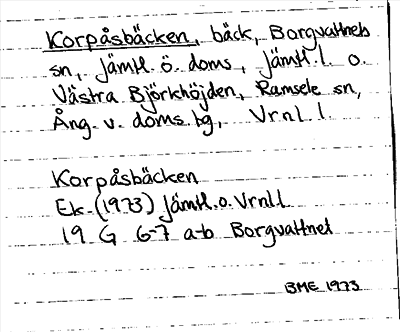 Korpåsbäcken, bäck, Borgvattnets
sn, Jämtl. ö. doms, Jämtl. l. o.
Västra Björkhöjden, Ramsele sn,
Ång. v. doms. bg, Vrnl. l.
Korpåsbäcken
Ek. (1973) Jämtl. o. Vrnl. l.
19 G 6-7 a-b Borgvattnet
BME 1973